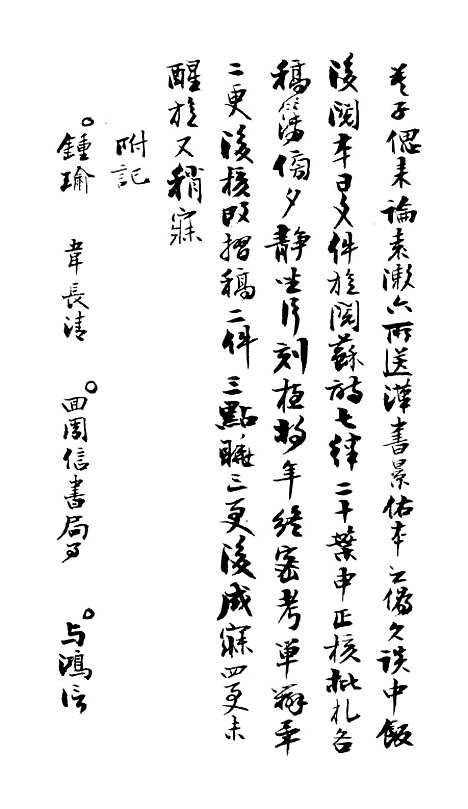 吳子偲來論袁漱六所送漢書景佑本之偽久談中飯
後閱本日文件旋閱蘇詩七律二十葉申正核批札各
稿傍夕靜坐片刻夜將年終密考單辦畢
二更後核改摺稿二件三點睡三更後成寐四更末
醒旋又稍寐
附記
○鍾瑜 韋長清 ○回周信書局事 ○与鴻信